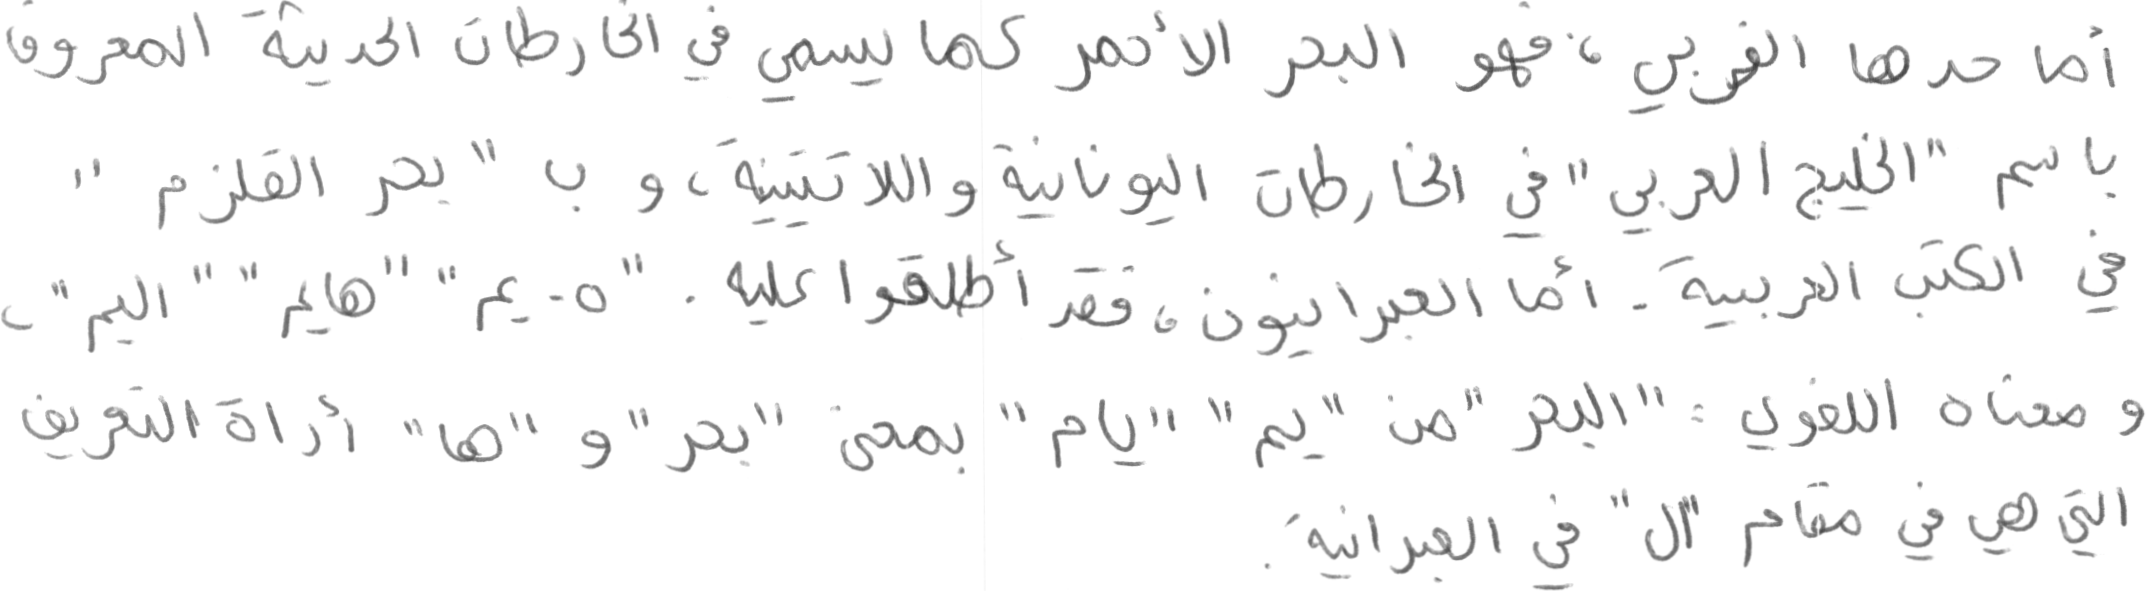 أما حدها الغربي، فهو البحر الأحمر كما يسمي في الخارطات الحديثة المعروف
باسم "الخليج العربي" في الخارطات اليونانية واللاتينية، و ب "بحر القلزم"
في الكتب العربية. أما العبرانيون، فقد أطلقوا عليه. "ه-يم" "هايم" "اليم"،
و معناه اللغوي: "البحر" من "يم" "يام" بمعنى "بحر" و "ها" أداة التعريف
التي هي في مقام "ال" في العبرانية.